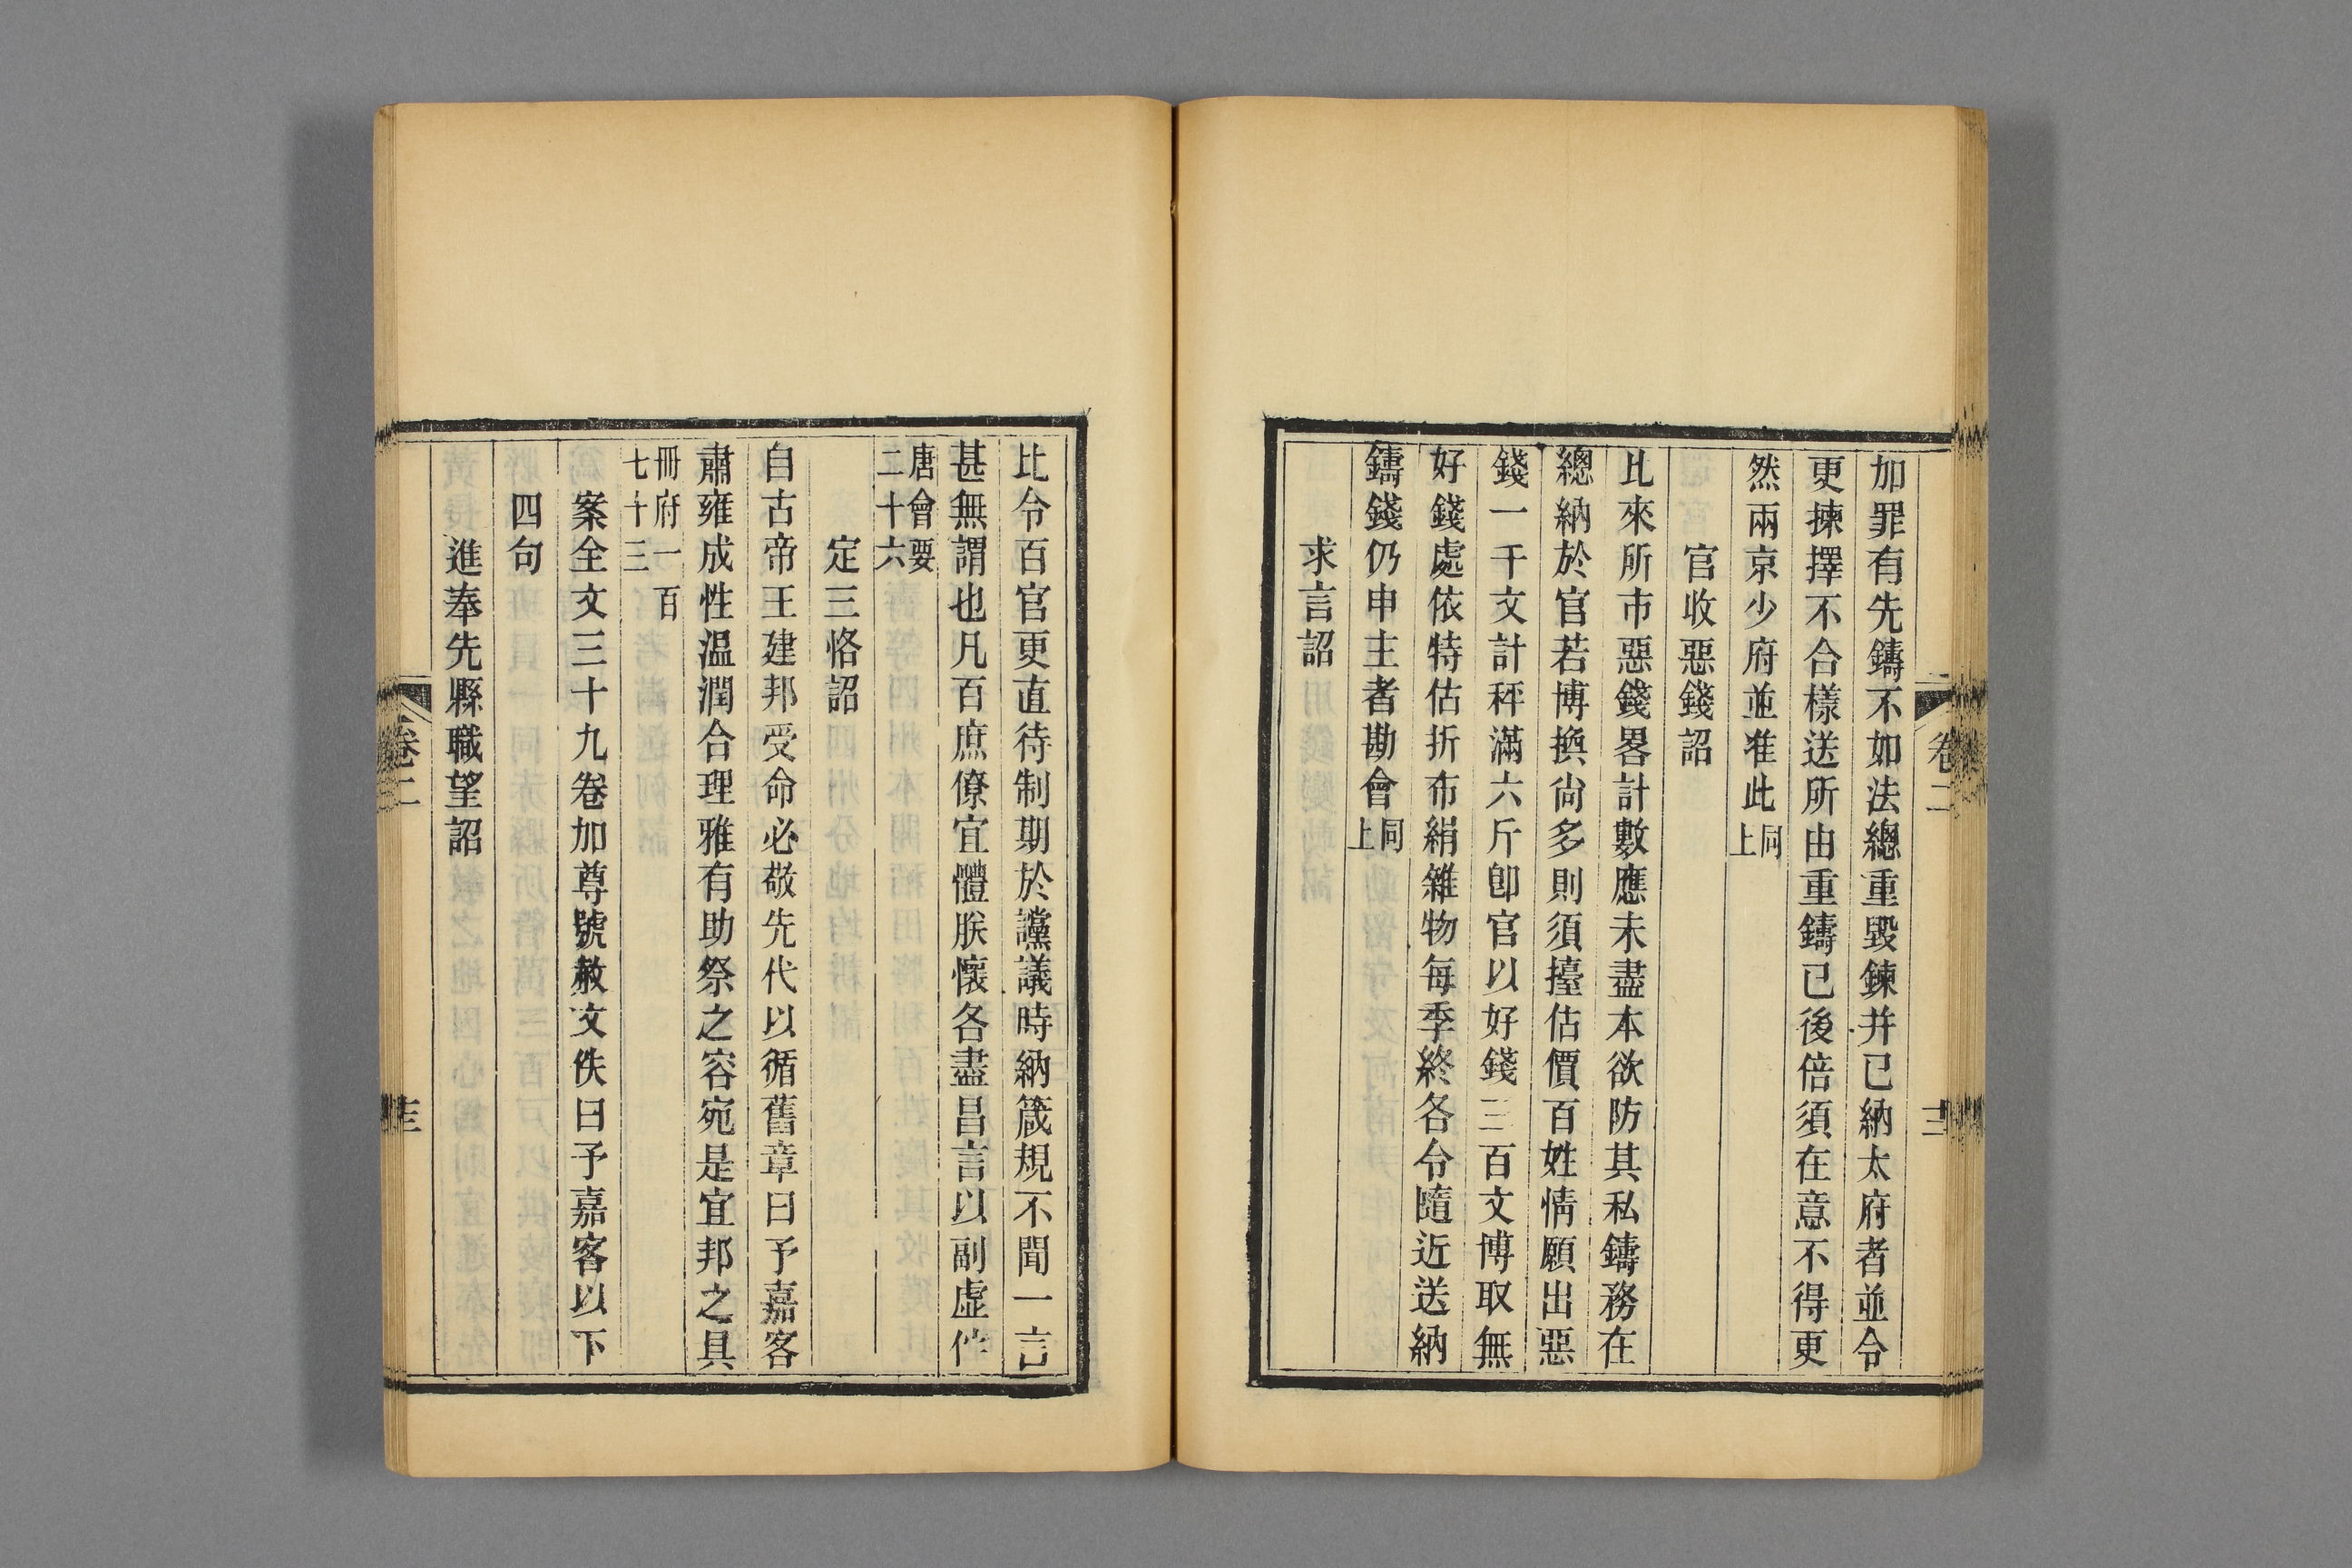 加罪有先鑄不如法總重毀鍊并已納太府者並令
更揀擇不合樣送所由重鑄已後倍須在意不得更
然兩京少府並准此同上
官收惡錢詔
比來所市惡錢畧計數應未盡本欲防其私鑄務在
總納於官若博換尙多則須擡估價百姓情願出惡
錢一千文計秤滿六斤卽官以好錢三百文博取無
好錢處依特估折布絹雜物每季終各令隨近送納
鑄錢仍申主者勘會同上
求言詔
卷二
比令百官更直待制期於讜議時納箴規不聞一言
甚無謂也凡百庶僚宜體朕懷各盡昌言以副虛佇
唐會要
二十六
定三恪詔
自古帝王建邦受命必敬先代以循舊章曰予嘉客
肅雍成性温潤合理雅有助祭之容宛是宜邦之具
冊府一百
七十三
案全文三十九卷加尊號赦文佚曰予嘉客以下
四句
進奉先縣職望詔
卷二